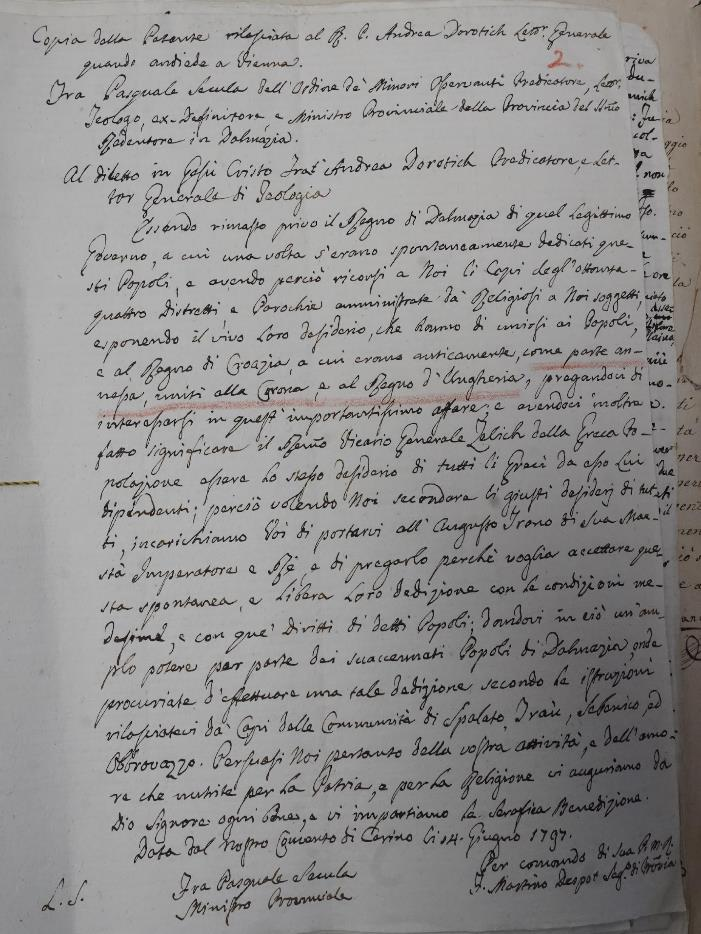 Copia della Patente rilasciata al R. P. Andrea Dorotich Lettr. Generale
quando andiede a Vienna.
2.
Fra Pasquale Secula dell'Ordine de' Minori Osservanti Predicatore, Lettr.
Teologo, ex-Definitore e Ministro Provinciale della Provincia del SSmo
Redentore in Dalmazia.
Al diletto in Gesù Cristo Frat' Andrea Dorotich Predicatore, e Let-
tor Generale di Teologia
Essendo rimasto privo il Regno di Dalmazia di quel Legittimo
Governo, a cui una volta s'erano spontaneamente dedicati que-
sti Popoli, e avendo perciò ricorsi a Noi li Capi degl'ottanta-
quattro Distretti, e Parochie amministrate da' Religiosi a Noi soggetti,
esponendo il vivo Loro desiderio, che hanno di unirsi ai Popoli,
e al Regno di Croazia, a cui erano anticamente, come parte an-
nessa, uniti alla Crona, e al Regno d'Ungheria, pregandoci di
interessarsi in quest' importantissimo affare; e avendoci inoltre
fatto significare il Revmo Vicario Generale Zelich della Greca Po-
polazione essere lo stesso desiderio di tutti li Greci da esso Lui
dipendenti; perciò volendo Noi secondare li giusti desiderj di tut-
ti, incarichiamo Voi di portarvi all'Augusto Trono di Sua Mae-
stà Imperatore e Rè, e di pregarlo perchè voglia accettare que-
sta spontanea, e libera Loro dedizione con le condizioni me-
desime, e con que' Diritti di detti Popoli; dandovi in ciò un'am-
plo potere per parte dei suaccennati Popoli di Dalmazia, onde
procuriate d'effettuare una tale dedizione secondo le istruzioni
rilasciatevi da' Capi delle Communità di Spalato, Traù, Sebenico, ed
Obbrovazzo. Persuasi Noi pertanto della vostra attività, e dell'amo-
re che nutrite per la Patria, e per la Religione vi auguriamo da
Dio Signore ogni bene, e vi impartiamo la Serafica Benedizione.
Data dal Nostro Convento di Carino li 14. Giugno 1797.
L. S.
Fra Pasquale Secula
Ministro Provinciale
Per comando di sua P. M. R.
F. Martino Despot Segr. di Provincia